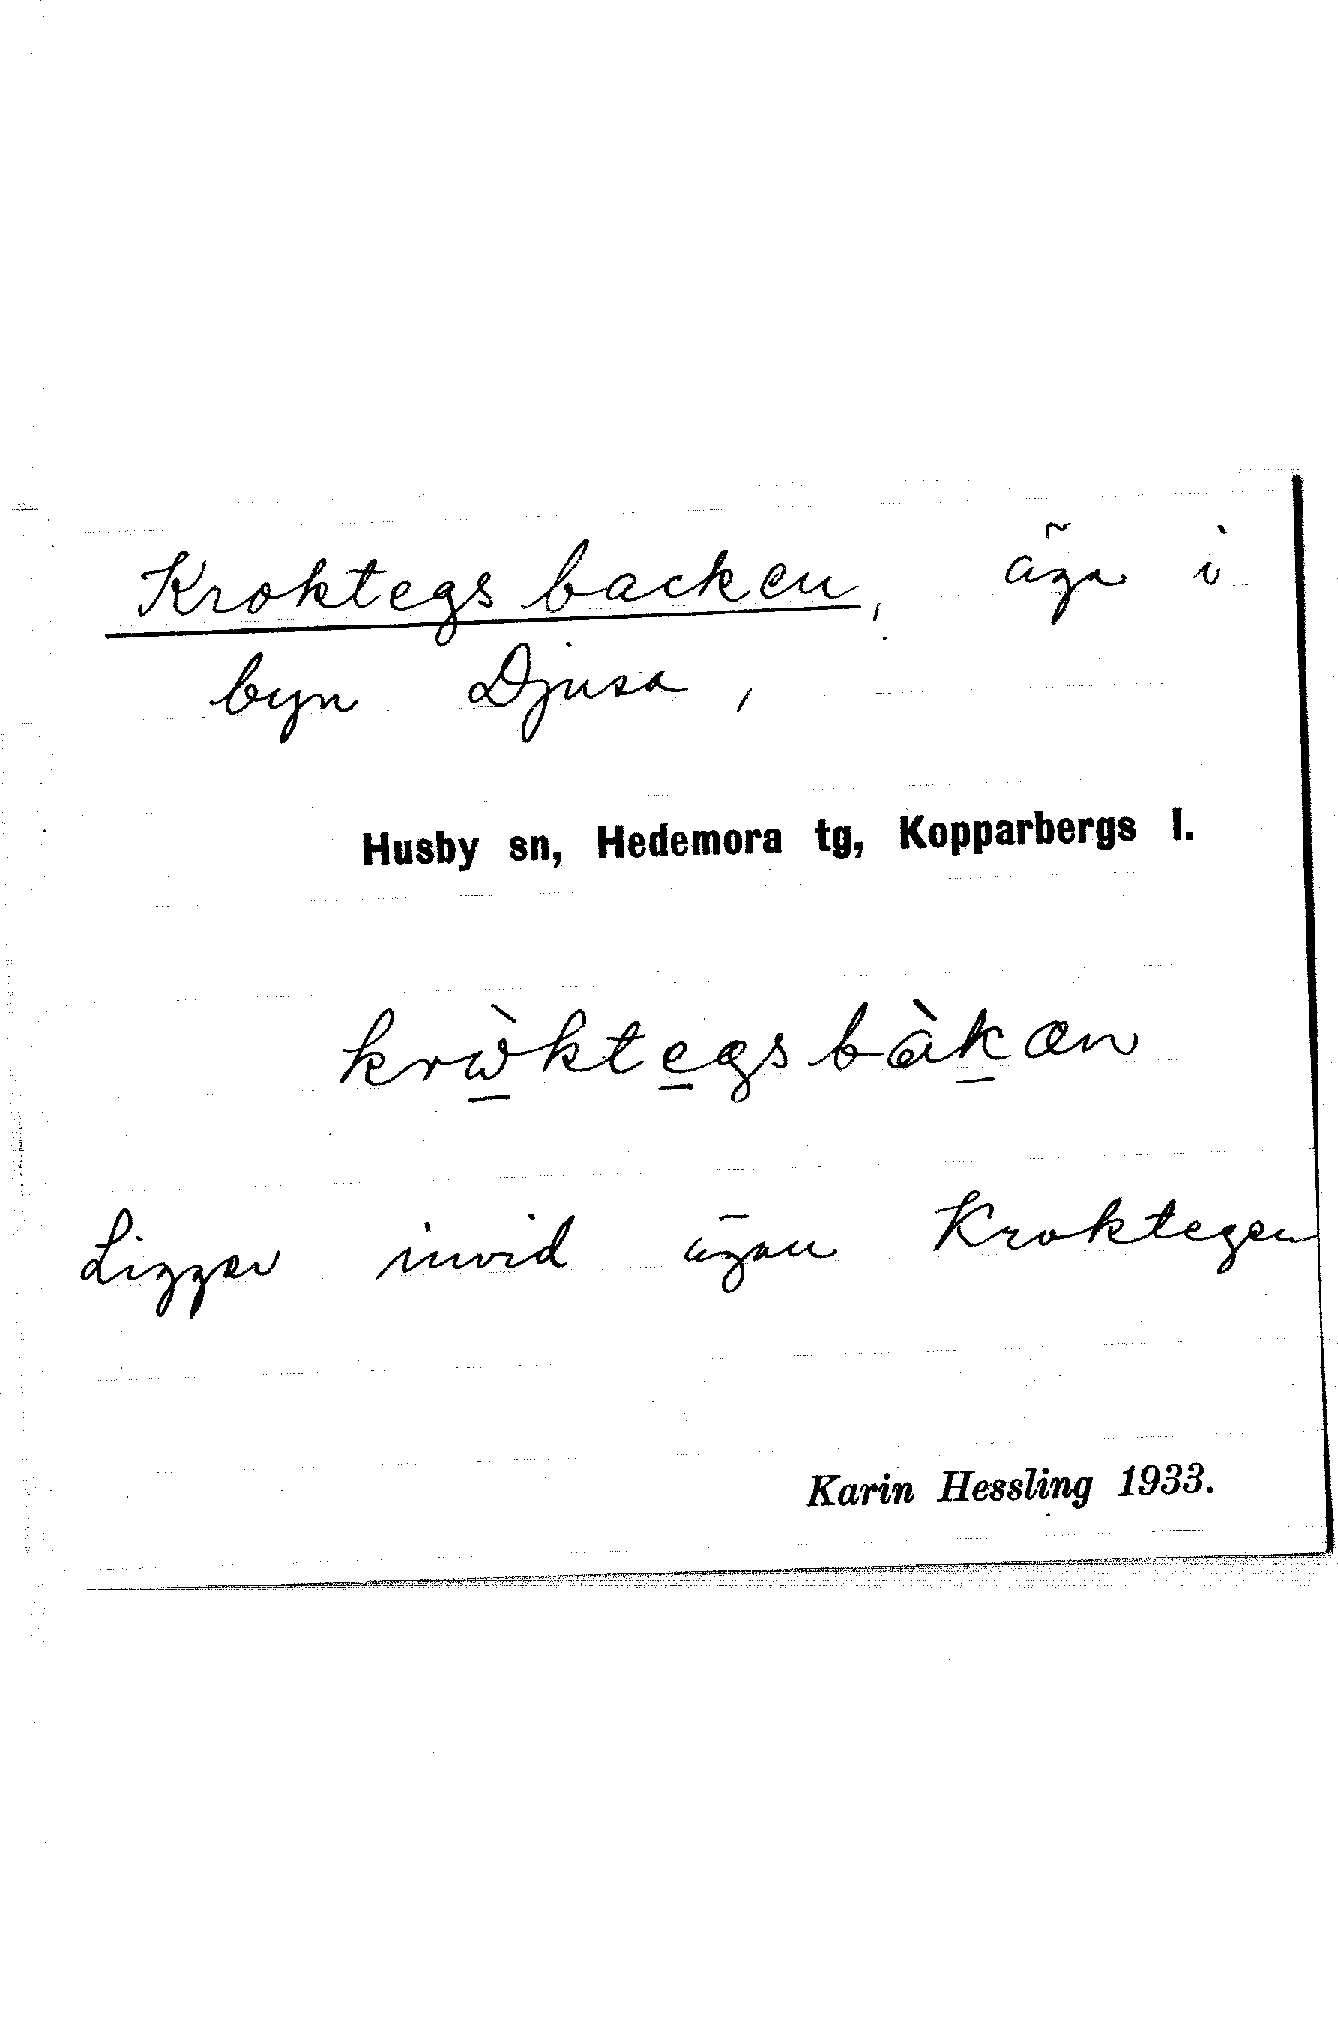 Kroktegsbacken, äga i
byn Djusa,
Husby sn, Hedemora tg, Kopparbergs l.
krὼ̠kte̠gsbàk̠æn
Ligger invid ägan Kroktegen
Karin Hessling 1933.